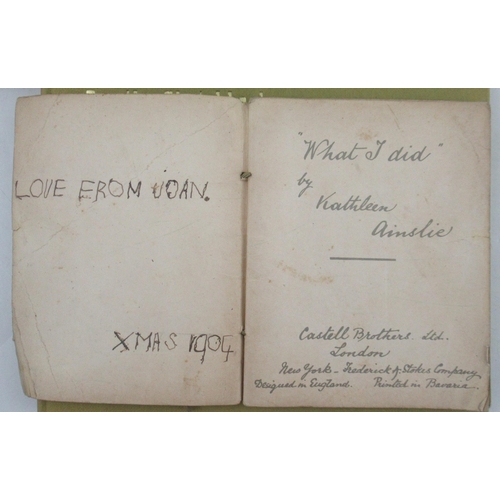 LOVE FROM JOAN.
XMAS 1904
"What I did"
by
Kathleen
Ainslie
Castell Brothers. Ltd.
London
New York - Frederick A Stokes Company
Designed in England. Printed in Bavaria..